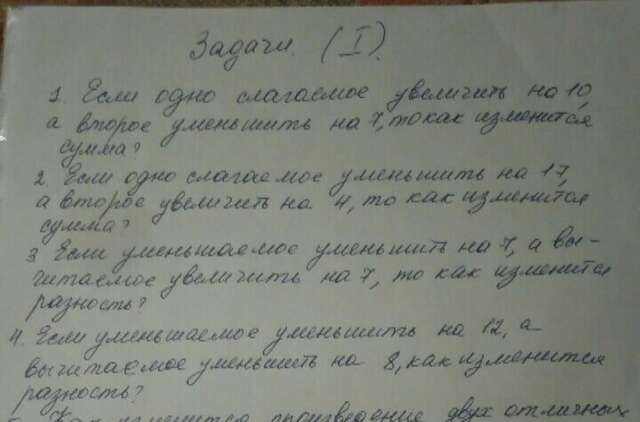 Задачи. (I).
1. Если одно слагаемое увеличить на 10,
а второе уменьшить на 7, то как изменится
сумма?
2. Если одно слагаемое уменьшить на 17,
а второе увеличить на 4, то как изменится
сумма?
3. Если уменьшаемое уменьшить на 7, а вы-
читаемое увеличить на 7, то как изменится
разность?
4. Если уменьшаемое уменьшить на 12, а
вычитаемое уменьшить на 8, как изменится
разность?
Как изменится произведение двух отличных